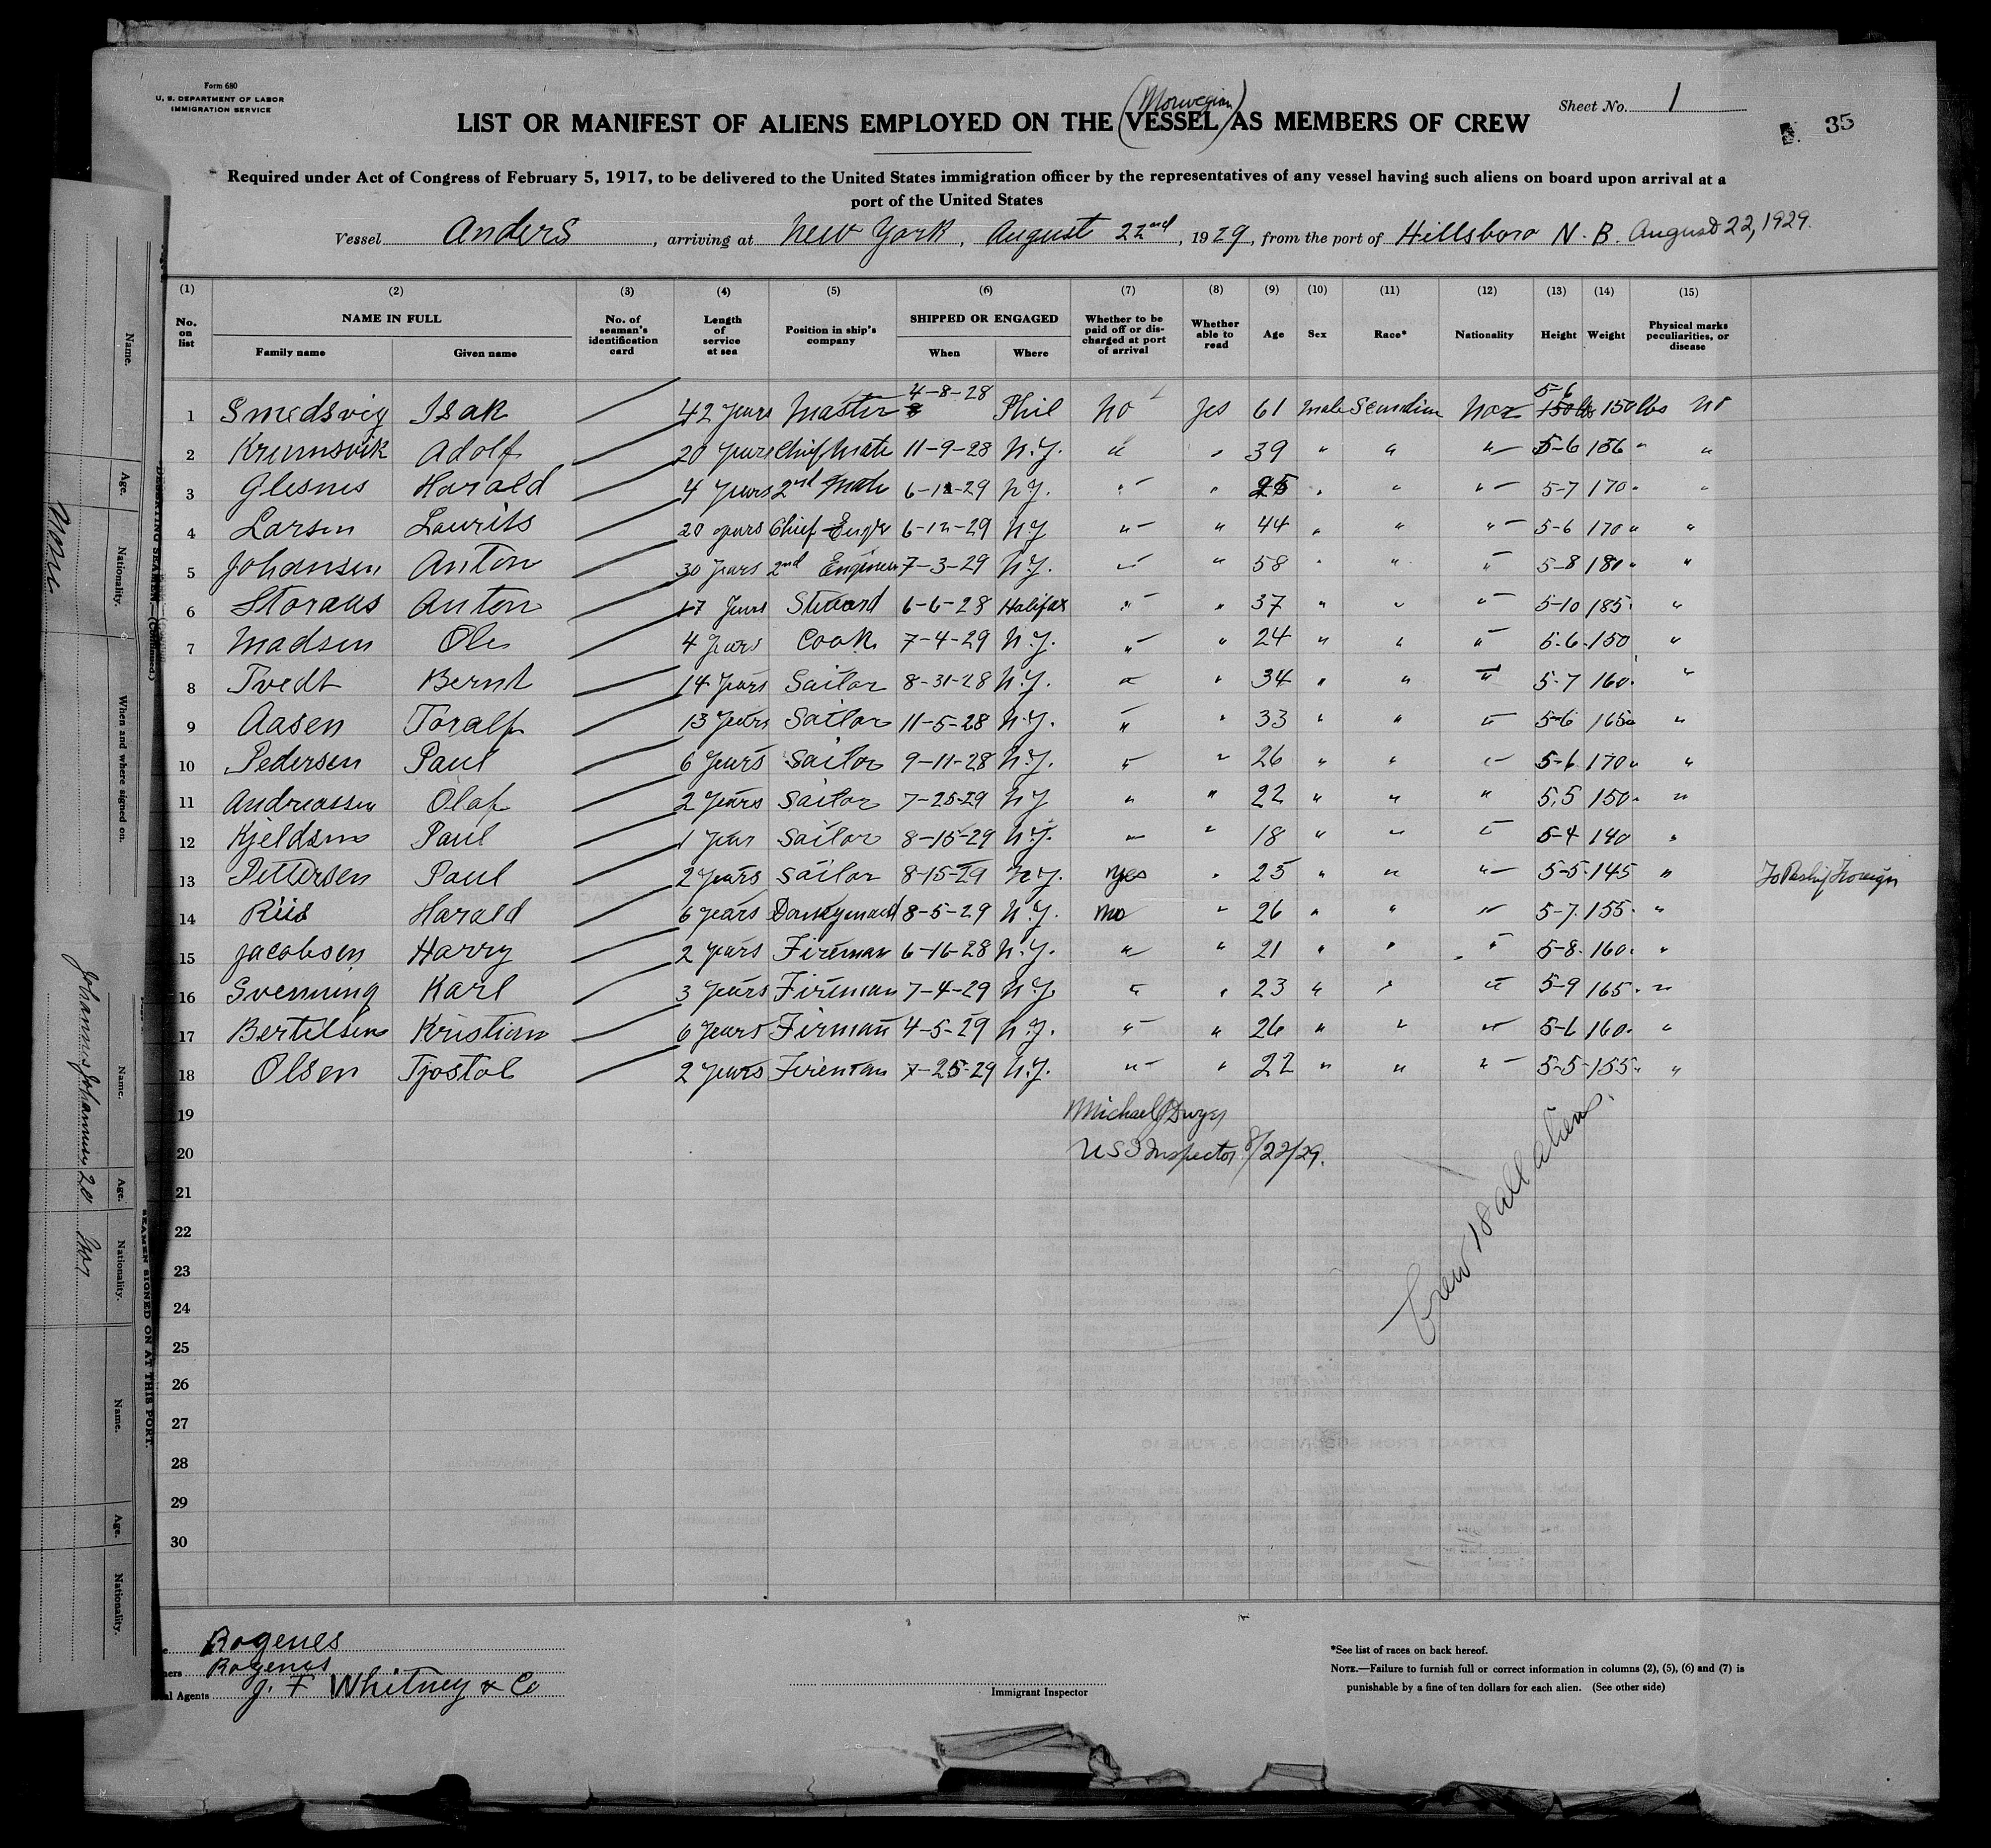 Form 680
U. S. DEPARTMENT OF LABOR
IMMIGRATION SERVICE
Sheet No. 1
35
(Norwegian)
LIST OR MANIFEST OF ALIENS EMPLOYED ON THE VESSEL AS MEMBERS OF CREW
Required under Act of Congress of February 5, 1917, to be delivered to the United States immigration officer by the representatives of any vessel having such aliens on board upon arrival at a
port of the United States
Vessel Anders, arriving at New York, August 22nd, 1929, from the port of Hillsboro N. B. August 22, 1929.
(1) (2) (3) (4) (5) (6) (7) (8) (9) (10) (11) (12) (13) (14) (15)
No. on list NAME IN FULL Family name Given name No. of seaman's identification card Length of service at sea Position in ship's company SHIPPED OR ENGAGED When Where Whether to be paid off or discharged at port of arrival Whether able to read Age Sex Race* Nationality Height Weight Physical marks peculiarities, or disease
1 Smedsvig Isak 42 years Master 4-8-28 Phil no yes 61 male Scandina Nor 5-6 150 lbs no
2 Krumsvik Adolf 20 years Chief Mate 11-9-28 N.Y. " " 39 " " " 5-6 156 " "
3 Glesnes Harald 4 years 2nd Mate 6-12-29 N.Y. " " 25 " " " 5-7 170 " "
4 Larsen Laurits 20 years Chief Eng'r 6-12-29 N.Y. " " 44 " " " 5-6 170 " "
5 Johansen Anton 30 years 2nd Engineer 7-3-29 N.Y. " " 58 " " " 5-8 180 " "
6 Storaas Anton 17 years Steward 6-6-28 Halifax " " 37 " " " 5-10 185 "
7 Madsen Ole 4 years Cook 7-4-29 N.Y. " " 24 " " " 5-6 150 "
8 Tvedt Bernt 14 years Sailor 8-31-28 N.Y. " " 34 " " " 5-7 160 "
9 Aasen Toralf 13 years Sailor 11-5-28 N.Y. " " 33 " " " 5-6 165 " "
10 Pedersen Paul 6 years Sailor 9-11-28 N.Y. " " 26 " " " 5-6 170 " "
11 Andreassen Olaf 2 years Sailor 7-25-29 N.Y. " " 22 " " " 5,5 150 "
12 Kjeldsen Paul 1 year Sailor 8-15-29 N.Y. " " 18 " " " 5-4 140 "
13 Pettersen Paul 2 years Sailor 8-15-29 N.Y. yes " 25 " " " 5-5 145 " To Reship Foreign
14 Riis Harald 6 years Donkeyman 8-5-29 N.Y. no " 26 " " " 5-7 155 "
15 Jacobsen Harry 2 years Fireman 6-16-28 N.Y. " " 21 " " " 5-8 160 "
16 Svenning Karl 3 years Fireman 7-4-29 N.Y. " " 23 " " " 5-9 165 "
17 Bertelsen Kristian 6 years Firman 4-5-29 N.Y. " " 26 " " " 5-6 160 "
18 Olsen Tjostol 2 years Fireman 7-25-29 N.Y. " " 22 " " " 5-5 155 " "
19 Michael J Dwyer
20 U S I Inspector 8/22/29.
21
22
23
24
25
26
27
28
29
30
Crew 18 all aliens.
Rogenes
Rogenes
Agents J. F Whitney & Co
Immigrant Inspector
*See list of races on back hereof.
NOTE.—Failure to furnish full or correct information in columns (2), (5), (6) and (7) is
punishable by a fine of ten dollars for each alien. (See other side)
Name. Age. Nationality. When and where signed on.
None
DESERTING SEAMEN—(Continued)
Name. Age. Nationality. Name. Age. Nationality.
20 Nor
SEAMEN SIGNED ON AT THIS PORT.
EXTRACT FROM SUBDIVISION 3, RULE 10